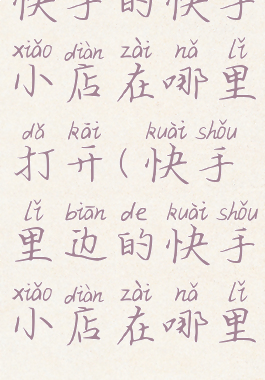 快手的快手
xiǎo diàn zài nǎ lǐ
小店在哪里
dǎ kāi kuài shǒu
打开(快手
lǐ biān de kuài shǒu
里边的快手
xiǎo diàn zài nǎ lǐ
小店在哪里